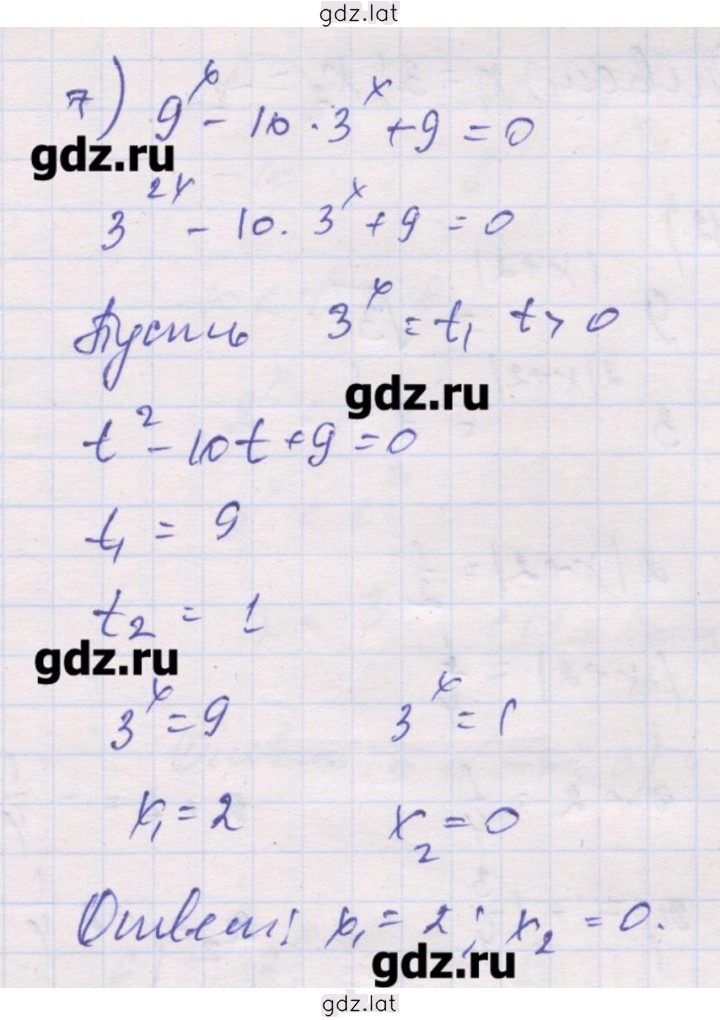 gdz.lat
7) 9^x - 10 · 3^x + 9 = 0
gdz.ru
3^2x - 10 · 3^x + 9 = 0
Пусть 3^x = t, t > 0
gdz.ru
t^2 - 10t + 9 = 0
t₁ = 9
t₂ = 1
gdz.ru
3^x = 9 3^x = 1
x₁ = 2 x₂ = 0
Ответ: x₁ = 2; x₂ = 0.
gdz.ru
gdz.lat